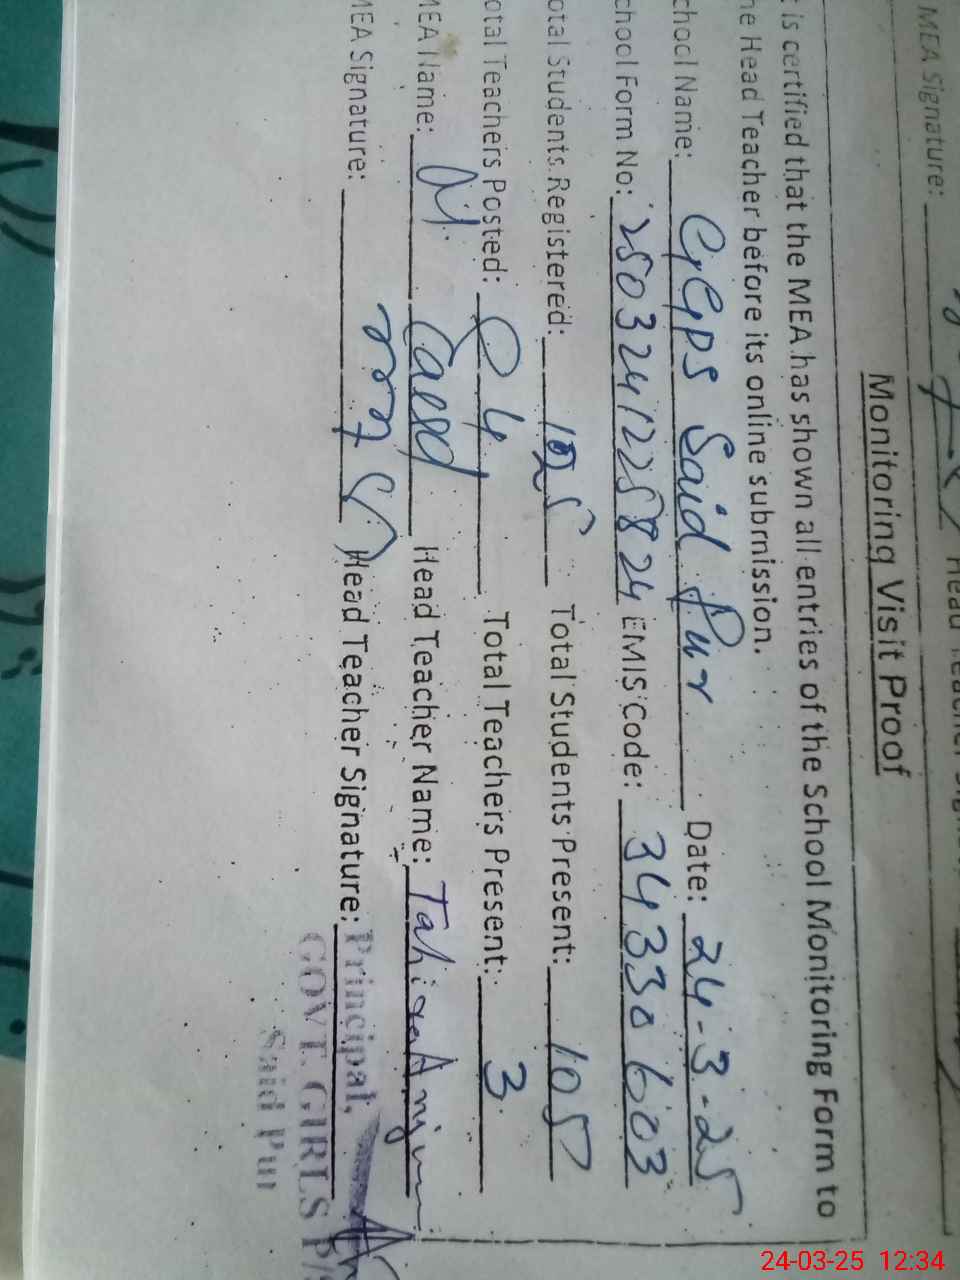 MEA Signature:
Monitoring Visit Proof
t is certified that the MEA has shown all entries of the School Monitoring Form to
he Head Teacher before its online submission.
chool Name: GGPS Said Pur Date: 24-3-25
chool Form No: 2503241225824 EMIS Code: 34330603
otal Students Registered: 125 Total Students Present: 105
otal Teachers Posted: 4 Total Teachers Present: 3
MEA Name: Saeed Head Teacher Name: Tahira Anjum
MEA Signature: Head Teacher Signature:
Principal,
GOVT. GIRLS P/
Said Pur
24-03-25 12:34